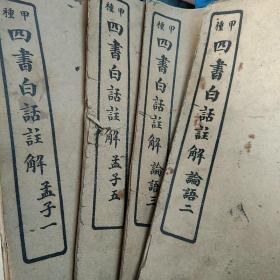 種甲
四書白話註解 孟子一
種甲
四書白話註解 孟子五
種甲
四書白話註解 論語三
種甲
四書白話註解 論語二